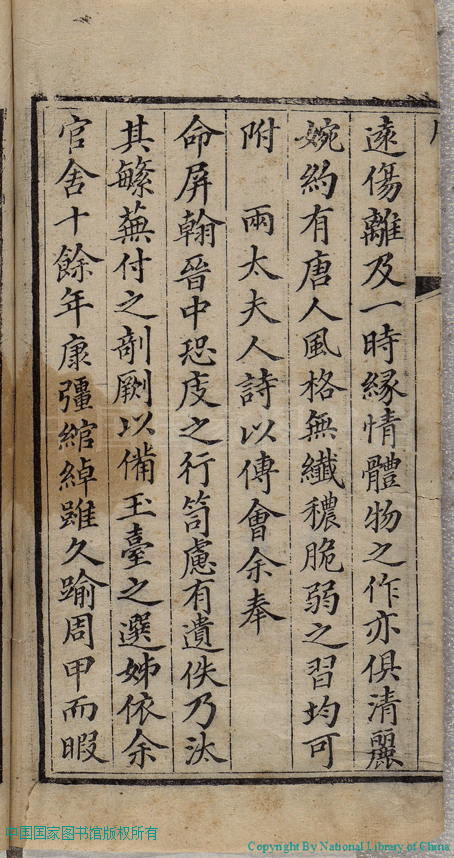 遠傷離及一時緣情體物之作亦俱清麗
婉約有唐人風格無纖穠脆弱之習均可
附　兩太夫人詩以傳會余奉
命屏翰晉中恐庋之行笥慮有遺佚乃汰
其蘩蕪付之剞劂以備玉臺之選姊依余
官舍十餘年康彊綰綽雖久踰周甲而暇
中国国家图书馆版权所有
Copyright By National Library of China